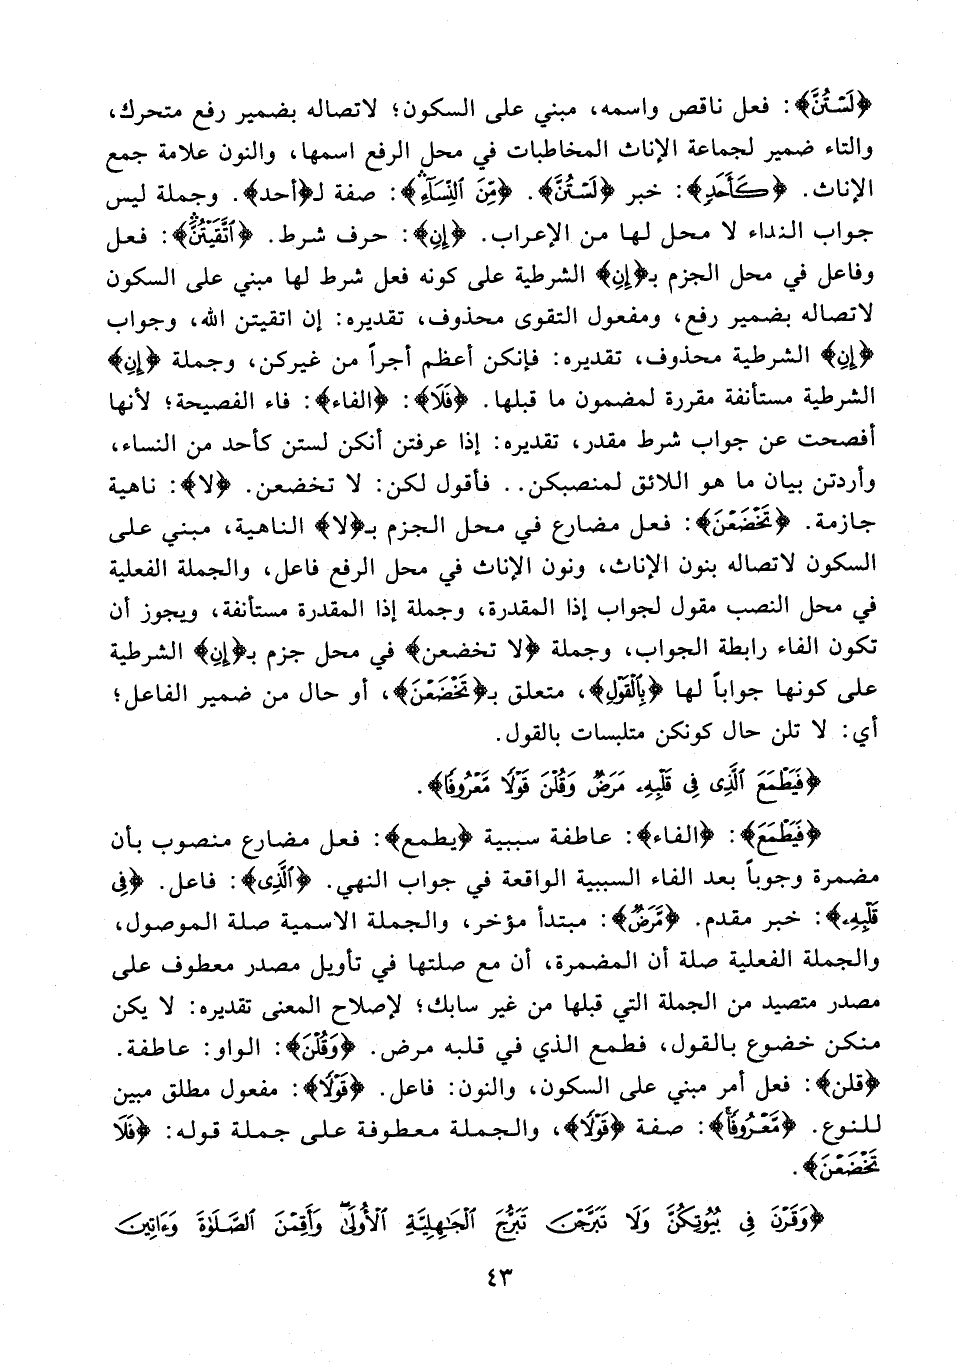 ﴿لَسْتُنَّ﴾: فعل ناقص واسمه، مبني على السكون؛ لاتصاله بضمير رفع متحرك،
والتاء ضمير لجماعة الإناث المخاطبات في محل الرفع اسمها، والنون علامة جمع
الإناث. ﴿كَأَحَدٍ﴾: خبر ﴿لَسْتُنَّ﴾. ﴿مِّنَ ٱلنِّسَآءِ﴾: صفة لـ﴿أحد﴾. وجملة ليس
جواب النداء لا محل لها من الإعراب. ﴿إِنِ﴾: حرف شرط. ﴿ٱتَّقَيْتُنَّ﴾: فعل
وفاعل في محل الجزم بـ﴿إِنِ﴾ الشرطية على كونه فعل شرط لها مبني على السكون
لاتصاله بضمير رفع، ومفعول التقوى محذوف، تقديره: إن اتقيتن الله، وجواب
﴿إِنِ﴾ الشرطية محذوف، تقديره: فإنكن أعظم أجراً من غيركن، وجملة ﴿إِنِ﴾
الشرطية مستأنفة مقررة لمضمون ما قبلها. ﴿فَلَا﴾: ﴿الفاء﴾: فاء الفصيحة؛ لأنها
أفصحت عن جواب شرط مقدر، تقديره: إذا عرفتن أنكن لستن كأحد من النساء،
وأردتن بيان ما هو اللائق لمنصبكن.. فأقول لكن: لا تخضعن. ﴿لا﴾: ناهية
جازمة. ﴿تَخْضَعْنَ﴾: فعل مضارع في محل الجزم بـ﴿لا﴾ الناهية، مبني على
السكون لاتصاله بنون الإناث، ونون الإناث في محل الرفع فاعل، والجملة الفعلية
في محل النصب مقول لجواب إذا المقدرة، وجملة إذا المقدرة مستأنفة، ويجوز أن
تكون الفاء رابطة الجواب، وجملة ﴿لا تخضعن﴾ في محل جزم بـ﴿إِنِ﴾ الشرطية
على كونها جواباً لها ﴿بِٱلْقَوْلِ﴾، متعلق بـ﴿تَخْضَعْنَ﴾، أو حال من ضمير الفاعل؛
أي: لا تلن حال كونكن متلبسات بالقول.
﴿فَيَطْمَعَ ٱلَّذِى فِى قَلْبِهِۦ مَرَضٌ وَقُلْنَ قَوْلًا مَّعْرُوفًا﴾.
﴿فَيَطْمَعَ﴾: ﴿الفاء﴾: عاطفة سببية ﴿يطمع﴾: فعل مضارع منصوب بأن
مضمرة وجوباً بعد الفاء السببية الواقعة في جواب النهي. ﴿ٱلَّذِى﴾: فاعل. ﴿فِى
قَلْبِهِۦ﴾: خبر مقدم. ﴿مَّرَضٌ﴾: مبتدأ مؤخر، والجملة الاسمية صلة الموصول،
والجملة الفعلية صلة أن المضمرة، أن مع صلتها في تأويل مصدر معطوف على
مصدر متصيد من الجملة التي قبلها من غير سابك؛ لإصلاح المعنى تقديره: لا يكن
منكن خضوع بالقول، فطمع الذي في قلبه مرض. ﴿وَقُلْنَ﴾: الواو: عاطفة.
﴿قلن﴾: فعل أمر مبني على السكون، والنون: فاعل. ﴿قَوْلًا﴾: مفعول مطلق مبين
للنوع. ﴿مَّعْرُوفًا﴾: صفة ﴿قَوْلًا﴾، والجملة معطوفة على جملة قوله: ﴿فَلَا
تَخْضَعْنَ﴾.
﴿وَقَرْنَ فِى بُيُوتِكُنَّ وَلَا تَبَرَّجْنَ تَبَرُّجَ ٱلْجَٰهِلِيَّةِ ٱلْأُولَىٰ وَأَقِمْنَ ٱلصَّلَوٰةَ وَءَاتِينَ
٤٣